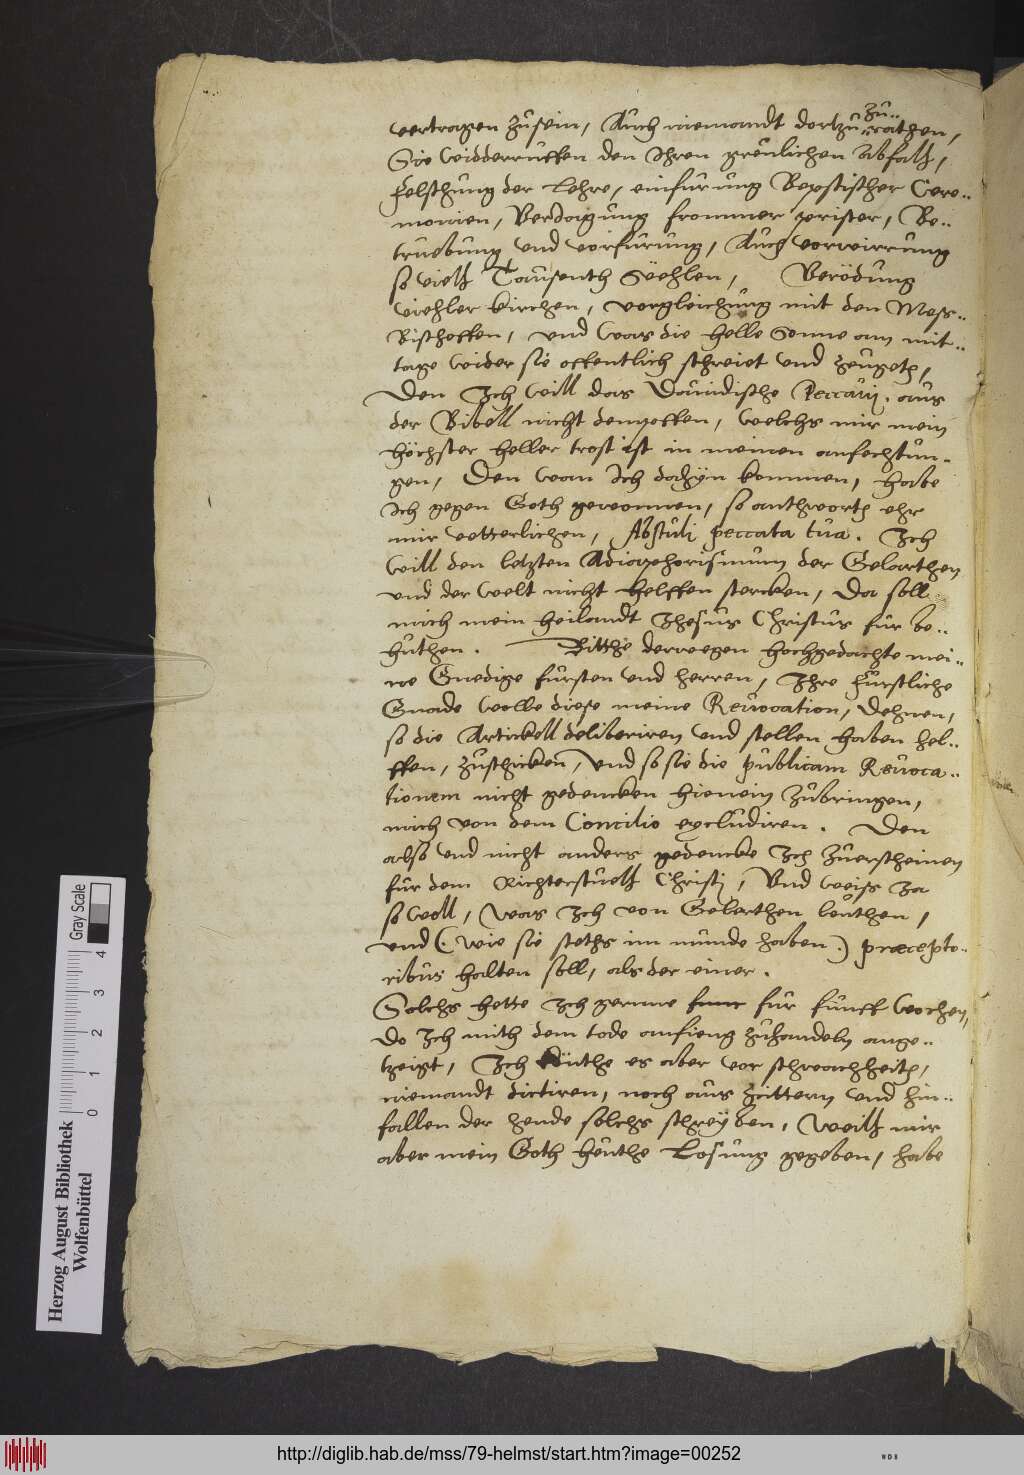 zu..
vertragen zusein, Auch niemandt dorzu rathen,
Sie widderruffen den Ihren greulichen Abfalh,
Felschung der Lehre, einfurung Bepstischer Cere..
monien, Verdagung frommer prister, Be..
truebung und vorfurung, Auch vorwirrung
so vielh Tausenth Seehlen, Verödung
viehler kirchen, vorgleichung mit den Mess..
Bischoffen, und was die helle Sonne am mit..
tage wider sie offentlich schreiet und zeugeth,
Den Ich will das Dauidische Peccaui. aus
der Bibell nicht demoffen, welchs mir mein
höchster heller trost ist in meinen anfechtun..
gen, Den wan ich dohyn kommen, habe
ich gegen Goth gewonnen, so anthworth ehr
mir vetterlichen, Abstuli peccata tua. Ich
will den letzten Adiaphorismum der Gelarthen
und der welt nicht helffen stercken, Da soll
mich mein heilandt Ihesus Christus fur be..
huthen. Bitthe derwegen hochgedachte mei..
ne Gnedige fursten und herren, Ihre Furstliche
Gnade wolle diese meine Reuocation, dehnen,
so die Artickell deliberiren und stellen haben hel..
ffen, zuschicken, und so sie die publicam Reuoca..
tionem nicht gedencken hienein zubringen,
mich von dem Concilio excludiren. Den
also und nicht anders gedencke Ich zuerscheinen
fur dem Richterstuelh Christi, Und weiss Ja
so woll, Was Ich von Gelarthen leuthen,
und (wie sie steths im munde haben.) præcepto..
ribus halten soll, als der einer.
Solchs hette Ich gernne fur funff wochen,
do Ich mith dem tode anfieng zuhandeln ange..
tzeigt, Ich künthe es aber vor schwachheith,
niemandt dictiren, noch aus zittern und hin..
fallen der hende solchs schreyben, Weilh mir
aber mein Goth heuthe Losung gegeben, habe
Herzog August Bibliothek
Wolfenbüttel
Gray Scale
0 1 2 3 4
http://diglib.hab.de/mss/79-helmst/start.htm?image=00252
WDB